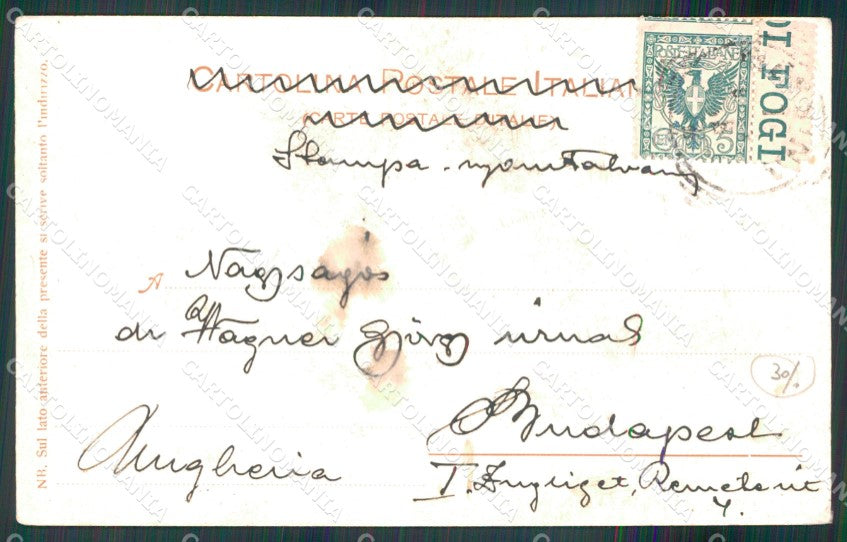 CARTOLINA POSTALE ITALIANA
(CARTE POSTALE D'ITALIE)
Stampa - nyomtatvány
POSTE ITALIANE
C. 5
DI FOGI
NB. Sul lato anteriore della presente si scrive soltanto l'indirizzo.
A Nagyságos
dr Wagner György úrnak
Budapest
Ungheria
I. Zugliget, Remete út
4.
30/.
CARTOLINOMANIA